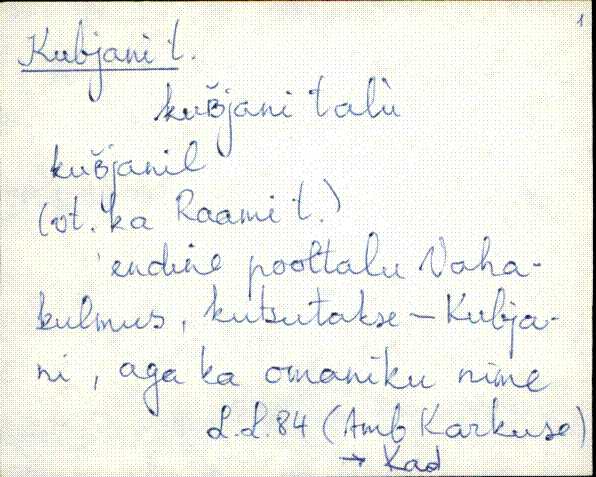 1
Kubjani t.
kuʙ̆jani talù
kuʙ̆janil
(vt. ka Raami t.)
'endine pooltalu Vaha-
kulmus, kutsutakse – Kubja-
ni, aga ka omaniku nime
L.L.84 (Amb Karkuse)
→ Kad